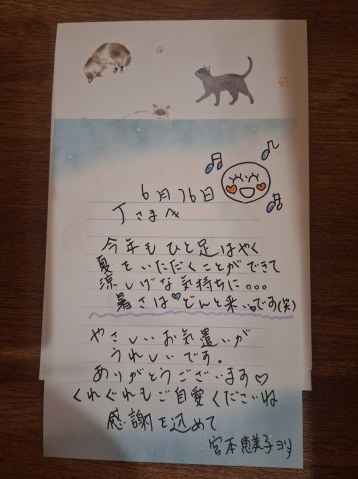 6月16日
Jさまへ
今年もひと足はやく
夏をいただくことができて
涼しげな気持ちに。。。
暑さは♥どんと来い。です(笑)
やさしいお気遣いが
うれしいです。
ありがとうございます♡
くれぐれもご自愛くださいね
感謝を込めて
宮本恵美子ヨリ